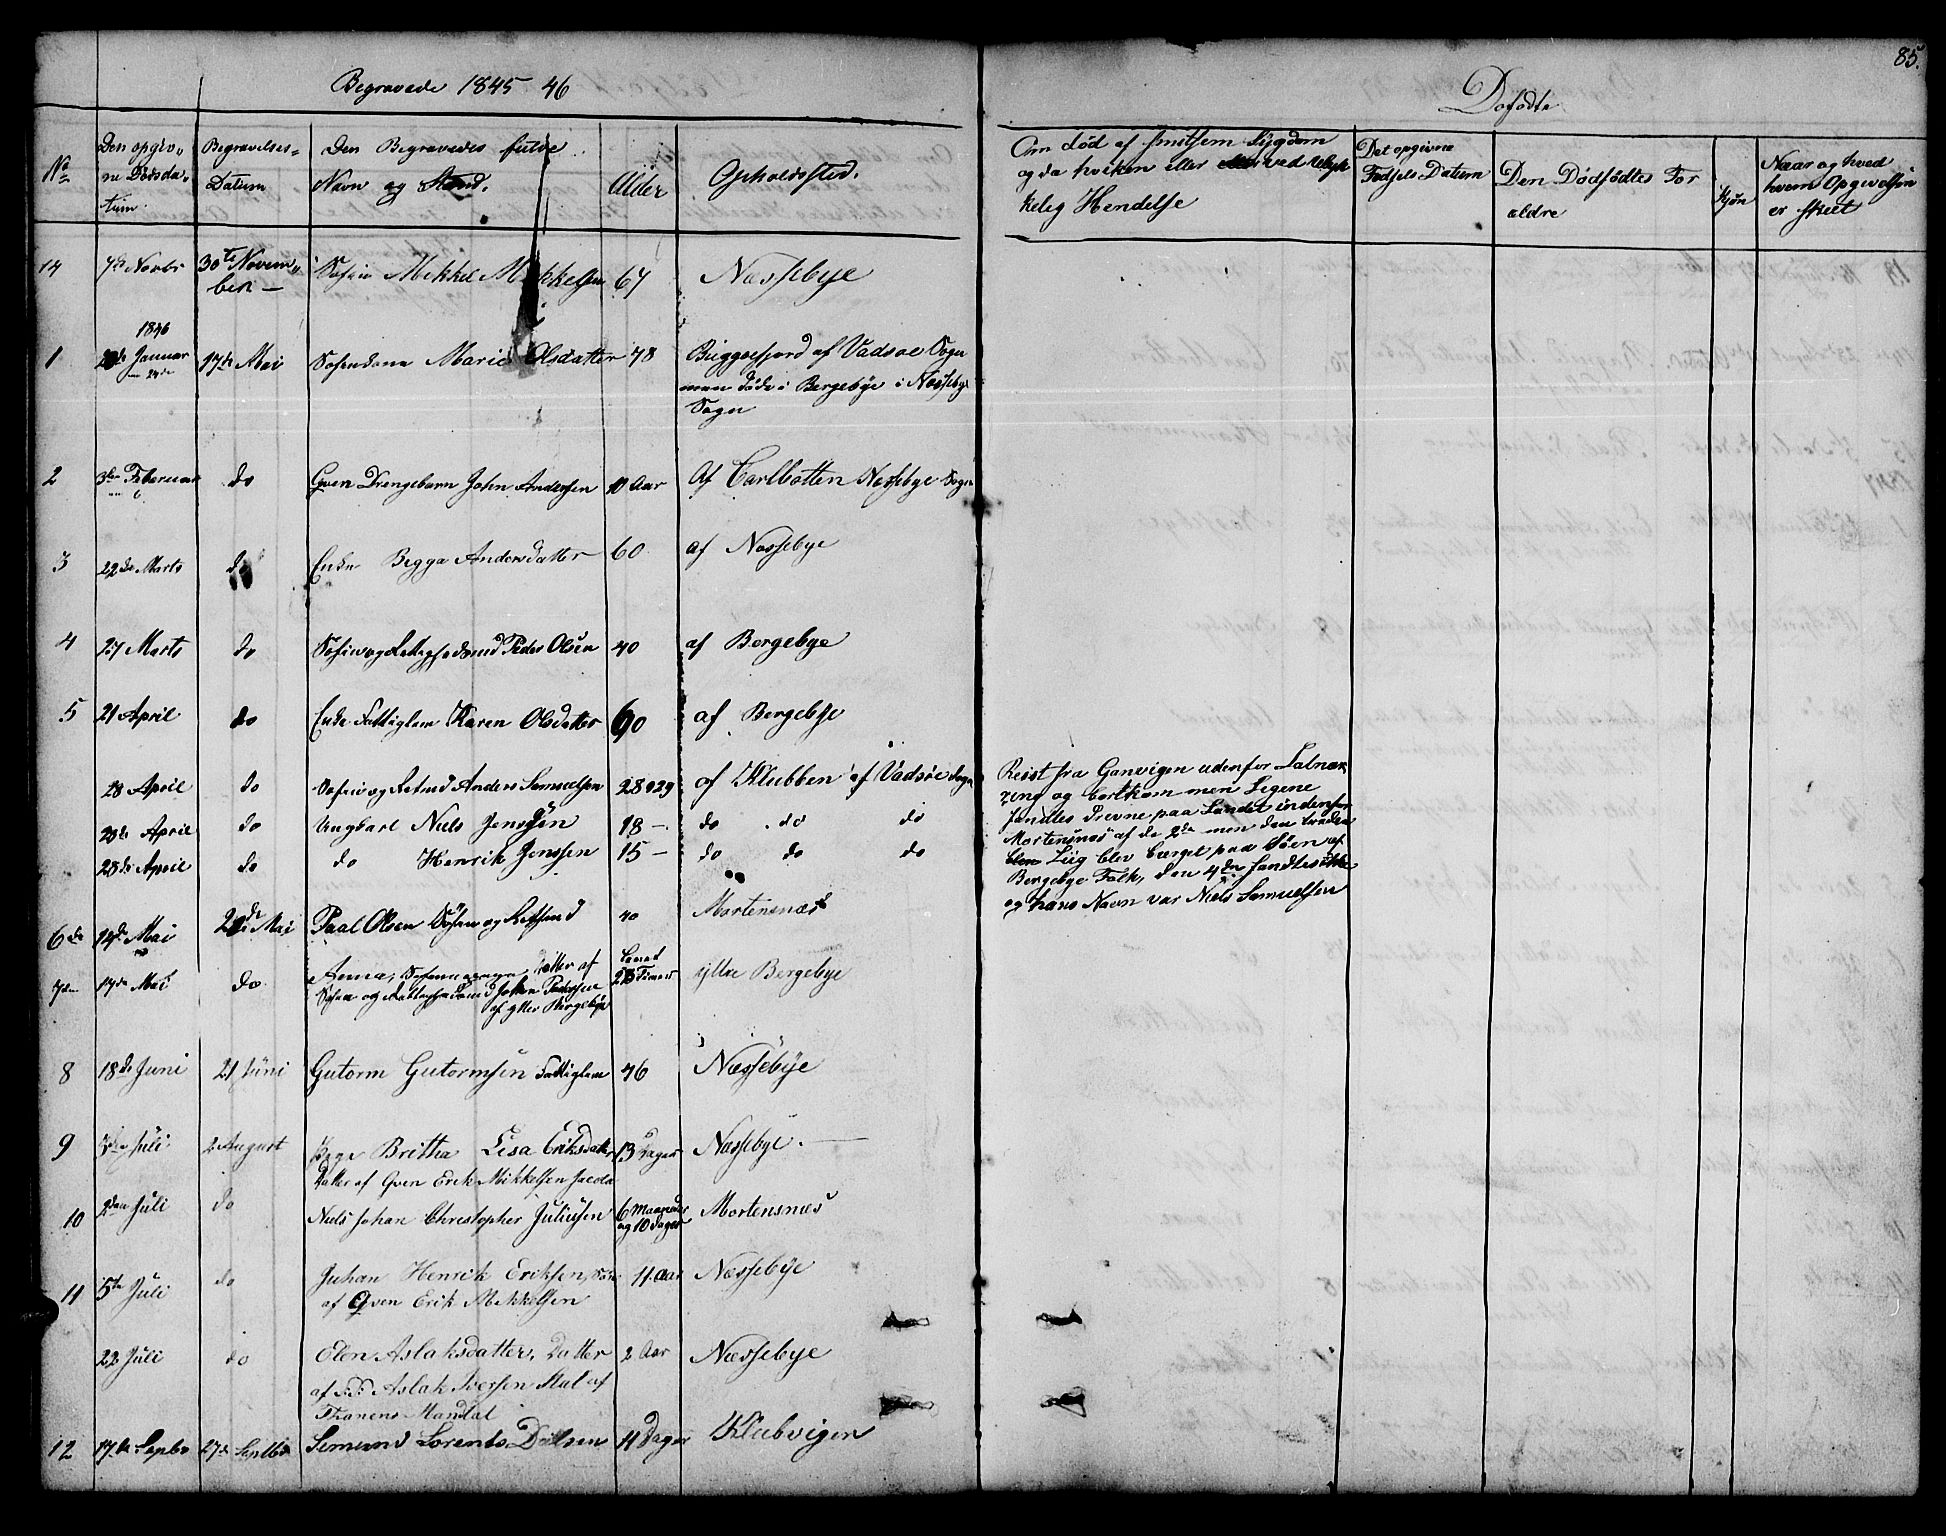 85.
Begravede 1845 46
Døfødte
No
Den opgiv„
ne Dødsda„
tum.
Begravelses„
Datum
Den Begravedes fulde
Navn og Stand.
Alder
Opholdssted.
Om død af smitsom Sygdom
og da hvilken eller ved ulyk
kelig Hendelse
Det opgivne
Fødsels Datum
Den Dødfødtes For
ældre
Kjøn
Naar og hved
hvem Opgivelsen
er skeet
14 7de Novbr 30te Novem„ Søfin Mikkel Mikkelsen 67 Næssebye
ber —
1846
1 Januar 17de Mai Marie Olsdatter 78 Buggøefjord af Vadsøe Sogn
24de
men døde i Bergebye i Næssebye
Sogn
2 3die Februar do Qven Drengebarn John Andersen 10 Aar Af Carlbotten Nessebye Sogn
3 22de Marts do Enke Begga Andersdatter 60 af Nessebye
4 27 Marts do Peder Olsen 40 af Bergebye
5 21 April do Enke Fattiglem Karen Olsdatter 60 af Bergebye
28 April do Anders Samuelsen 28 a 29 af Klubben af Vadsøe Sogn
28de April do Ungkarl Niels Jenssen 18 — do do do
28de April do do Henrik Jenssen 15 — do do do
Reist fra Ganvigen udenfor
og bortkom men Ligene
fandtes Drevne paa Landet indenfor
Mortensnæs af de 2de men den tredie
Liig blev bærget paa Søen af
Bergebye Folk, den 4de fandtes ikke
og hans Navn var Niels Samuelsen
6de 14de Mai Mai Paal Olsen 40 Mortensnæs
7de 17de Mai do Anna, Datter af 23 Timer yttre Bergebye
Johan Pedersen
af yttre Bergebye
8 18de Juni 21 Juni Gutorm Gutormsen Fattiglem 76 Næssebye
9 Juli 2 August Pige Britha Lisa Eriksdatter 13 Dager Næssebye.
Datter af Qven Erik Mikkelsen
10 2den Juli do Niels Johan Christopher Juliusen 6 Maaneder Mortensnæs
og 10 Dager
11 5te Juli do Johan Henrik Eriksen, Søn 11 Aar Næssebye
af Qven Erik Mikkelsen
22 Juli do Elen Aslaksdatter, Datter 2 Aar Næssebye
af Aslak Iversen af
Thanens Mandtal
12 17de Septbr 27de Septbr Lorents 11 Dager Klubvigen